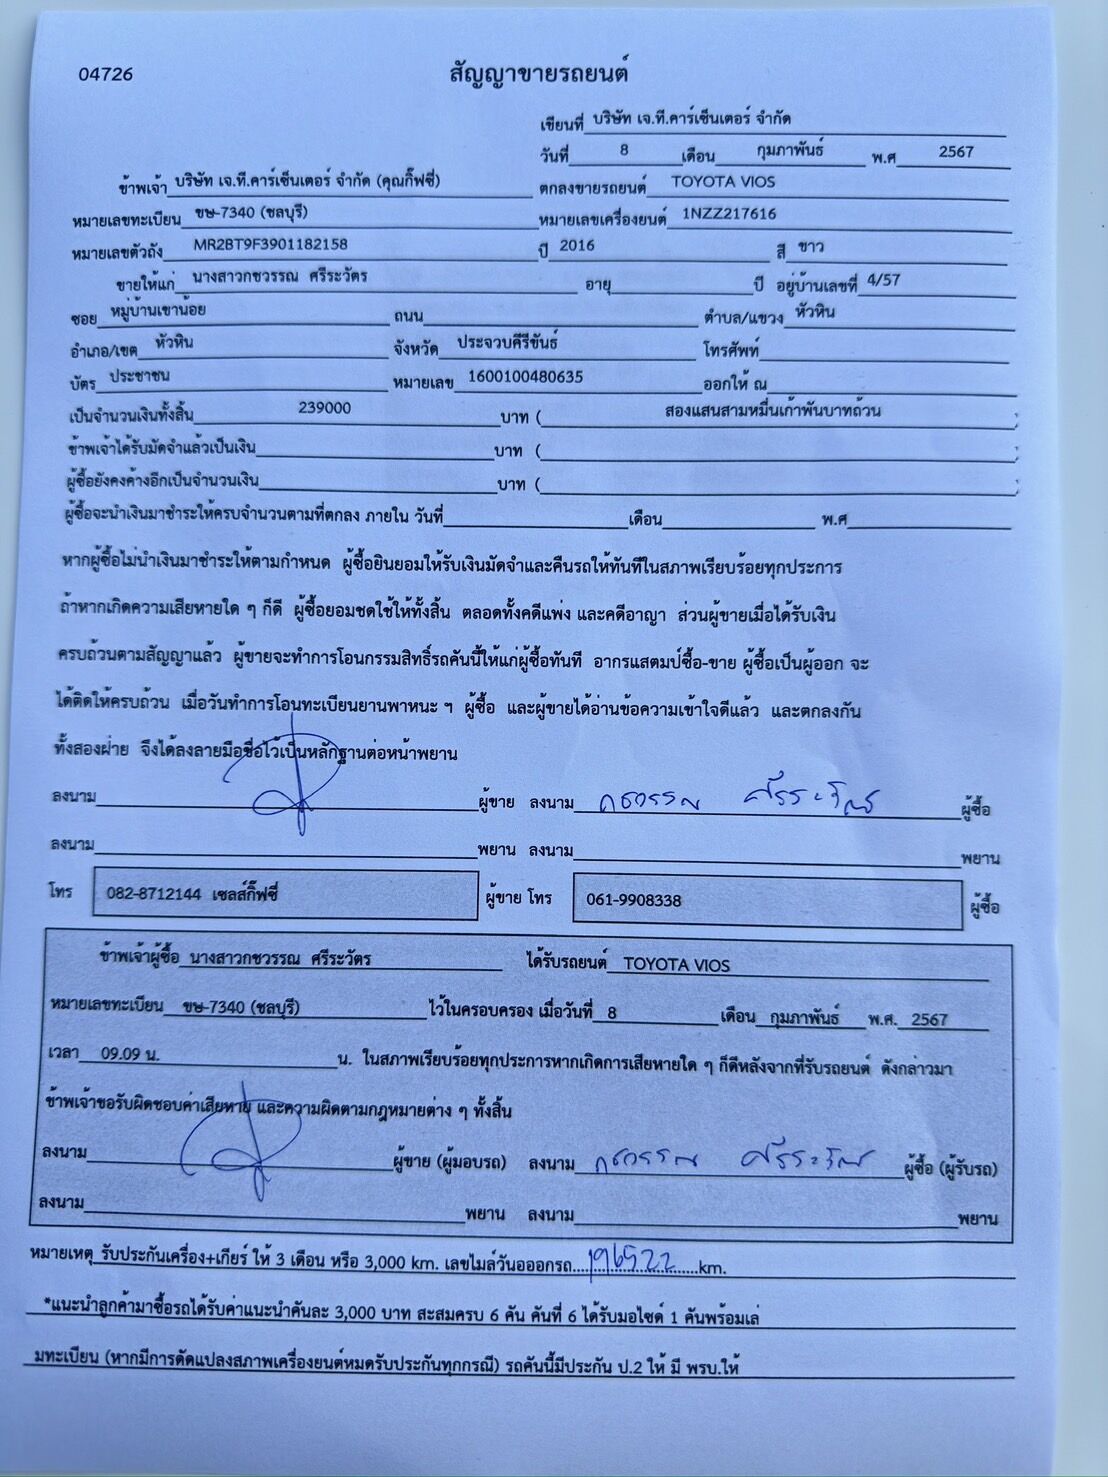 04726
สัญญาขายรถยนต์
เขียนที่ บริษัท เจ.ที.คาร์เซ็นเตอร์ จำกัด
วันที่ 8 เดือน กุมภาพันธ์ พ.ศ 2567
ข้าพเจ้า บริษัท เจ.ที.คาร์เซ็นเตอร์ จำกัด (คุณกิ๊ฟซี่) ตกลงขายรถยนต์ TOYOTA VIOS
หมายเลขทะเบียน ขษ-7340 (ชลบุรี) หมายเลขเครื่องยนต์ 1NZZ217616
หมายเลขตัวถัง MR2BT9F3901182158 ปี 2016 สี ขาว
ขายให้แก่ นางสาวกชวรรณ ศรีระวัตร อายุ ปี อยู่บ้านเลขที่ 4/57
ซอย หมู่บ้านเขาน้อย ถนน ตำบล/แขวง หัวหิน
อำเภอ/เขต หัวหิน จังหวัด ประจวบคีรีขันธ์ โทรศัพท์
บัตร ประชาชน หมายเลข 1600100480635 ออกให้ ณ
เป็นจำนวนเงินทั้งสิ้น 239000 บาท ( สองแสนสามหมื่นเก้าพันบาทถ้วน )
ข้าพเจ้าได้รับมัดจำแล้วเป็นเงิน บาท ( )
ผู้ซื้อยังคงค้างอีกเป็นจำนวนเงิน บาท ( )
ผู้ซื้อจะนำเงินมาชำระให้ครบจำนวนตามที่ตกลง ภายใน วันที่ เดือน พ.ศ
หากผู้ซื้อไม่นำเงินมาชำระให้ตามกำหนด ผู้ซื้อยินยอมให้รับเงินมัดจำและคืนรถให้ทันทีในสภาพเรียบร้อยทุกประการ
ถ้าหากเกิดความเสียหายใด ๆ ก็ดี ผู้ซื้อยอมชดใช้ให้ทั้งสิ้น ตลอดทั้งคดีแพ่ง และคดีอาญา ส่วนผู้ขายเมื่อได้รับเงิน
ครบถ้วนตามสัญญาแล้ว ผู้ขายจะทำการโอนกรรมสิทธิ์รถคันนี้ให้แก่ผู้ซื้อทันที อากรแสตมป์ซื้อ-ขาย ผู้ซื้อเป็นผู้ออก จะ
ได้ติดให้ครบถ้วน เมื่อวันทำการโอนทะเบียนยานพาหนะ ฯ ผู้ซื้อ และผู้ขายได้อ่านข้อความเข้าใจดีแล้ว และตกลงกัน
ทั้งสองฝ่าย จึงได้ลงลายมือชื่อไว้เป็นหลักฐานต่อหน้าพยาน
ลงนาม ผู้ขาย ลงนาม กชวรรณ ศรีระวัตร ผู้ซื้อ
ลงนาม พยาน ลงนาม พยาน
โทร 082-8712144 เซลส์กิ๊ฟซี่ ผู้ขาย โทร 061-9908338 ผู้ซื้อ
ข้าพเจ้าผู้ซื้อ นางสาวกชวรรณ ศรีระวัตร ได้รับรถยนต์ TOYOTA VIOS
หมายเลขทะเบียน ขษ-7340 (ชลบุรี) ไว้ในครอบครอง เมื่อวันที่ 8 เดือน กุมภาพันธ์ พ.ศ. 2567
เวลา 09.09 น. น. ในสภาพเรียบร้อยทุกประการหากเกิดการเสียหายใด ๆ ก็ดีหลังจากที่รับรถยนต์ ดังกล่าวมา
ข้าพเจ้าขอรับผิดชอบค่าเสียหาย และความผิดตามกฎหมายต่าง ๆ ทั้งสิ้น
ลงนาม ผู้ขาย (ผู้มอบรถ) ลงนาม กชวรรณ ศรีระวัตร ผู้ซื้อ (ผู้รับรถ)
ลงนาม พยาน ลงนาม พยาน
หมายเหตุ รับประกันเครื่อง+เกียร์ ให้ 3 เดือน หรือ 3,000 km. เลขไมล์วันอออกรถ....196522....km.
*แนะนำลูกค้ามาซื้อรถได้รับค่าแนะนำคันละ 3,000 บาท สะสมครบ 6 คัน คันที่ 6 ได้รับมอไซด์ 1 คันพร้อมเล่
มทะเบียน (หากมีการดัดแปลงสภาพเครื่องยนต์หมดรับประกันทุกกรณี) รถคันนี้มีประกัน ป.2 ให้ มี พรบ.ให้